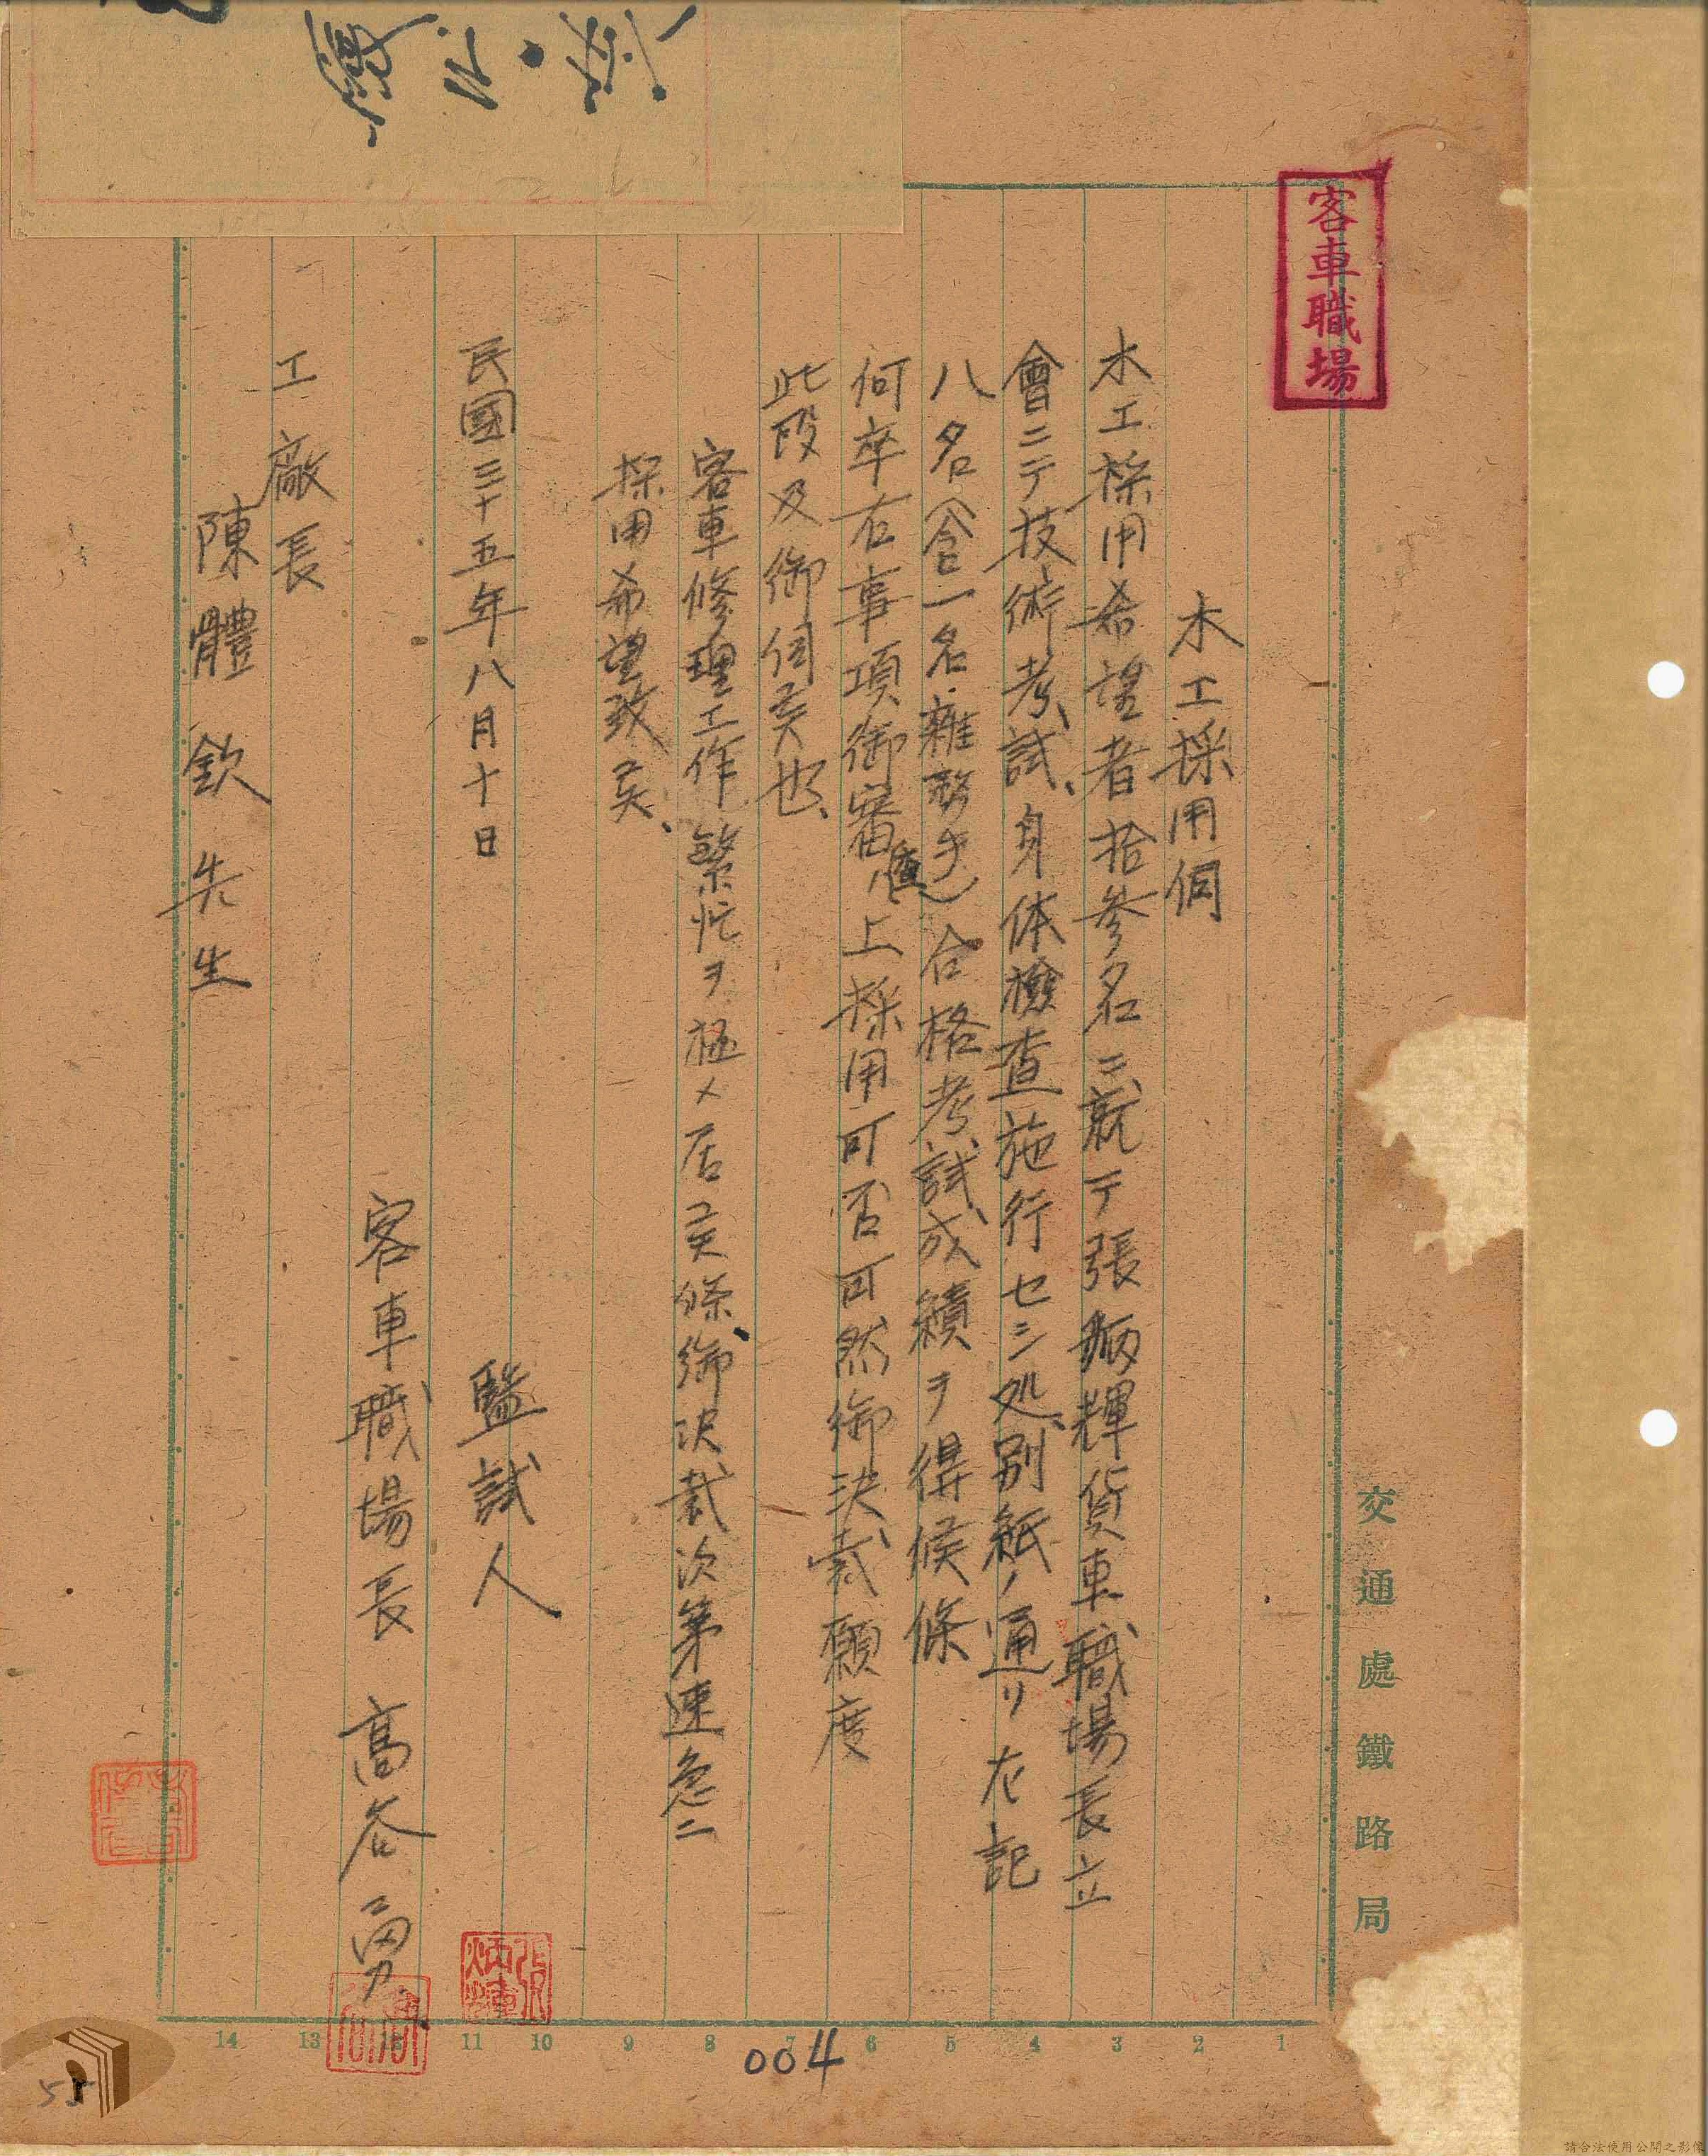 客車職場
交通處鐵路局
木工採用伺
木工採用希望者拾參名ニ就テ張炳輝貨車職場長立
會ニテ技術考試、身体檢查施行セシ処、別紙ノ通リ左記
八名(含一名雜務手)合格考試成績ヲ得候條
何卒右事項御審查ノ上採用可否可然御決裁願度
此段及御伺候也、
客車修理工作繁忙ヲ極メ居候條、御決裁次第速急ニ
採用希望致候、
民國三十五年八月十日
監試人
張炳輝
客車職場長 高谷勇
工廠長
陳體欽先生
1 2 3 4 5 6 7 8 9 10 11 13 14
004
55
請合法使用公開之影像